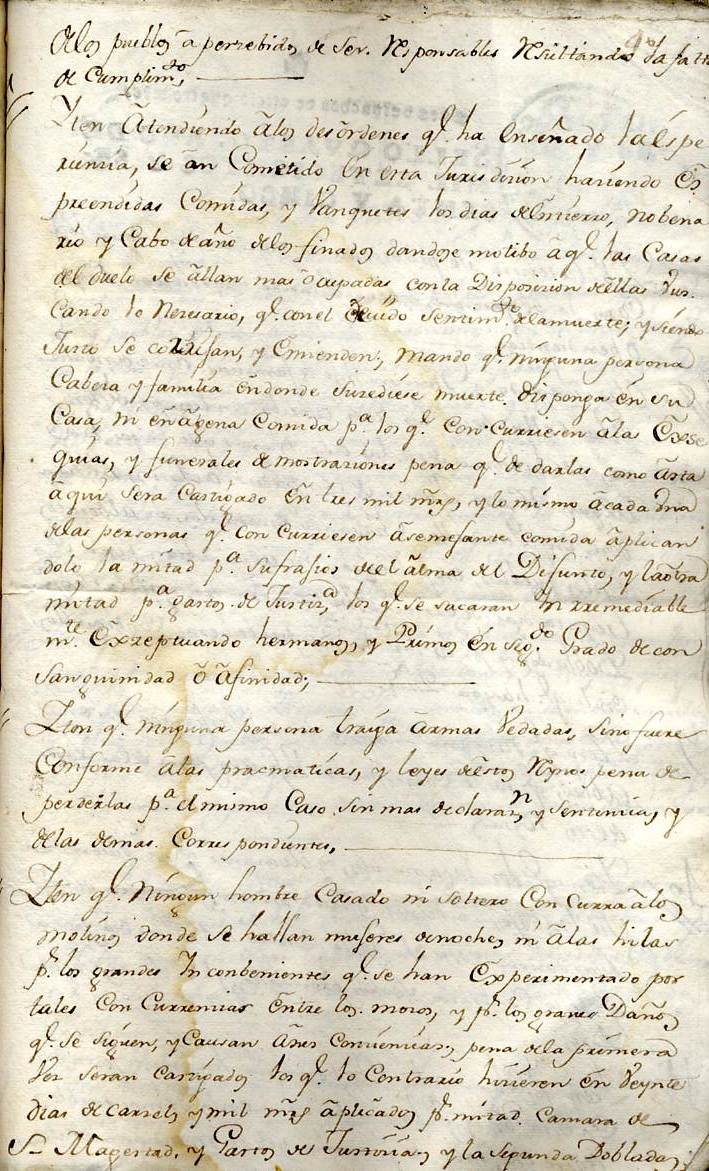 de los pueblos apercebidos de ser Responsables Resultando la falta
de Cumplimto,
Yten Atendiendo a los desordenes q.e ha Enseñado la espe
riencia, se an Cometido En esta Jurisdizion haviendo Ex
preendidas Comidas, y Vanquetes los dias del Entierro, nobena
rio y Cabo de año de los finados dandose motibo a q.e las Casas
del duelo se allan mas ocupadas con la Disposicion de ellas bus
cando lo Nezesario, q.e con el devido sentimto de la muerte; y siendo
Justo se corrijan, y Emienden, mando q.e ninguna persona
Cabeza y familia en donde suzediese muerte disponga en su
Casa, ni en agena Comida p.a los q.e Concurriesen a las Exse
quias, y funerales demostraziones pena q.e de darlas como asta
aqui sera Castigado en tres mil mrs, y lo mismo a cada una
de las personas q.e concurriesen a semejante comida aplican
dolo la mitad p.a sufrajios del alma del Difunto, y la otra
mitad p.a gastos de Justiz.a los q.e se sacaran Irremediable
m.te Exzeptuando hermanos, y Primos En seg.do Grado de con
sanguinidad o afinidad;
Yten q.e ninguna persona traiga armas Vedadas, sino fuere
Conforme a las pracmaticas, y leyes de estos Rynos pena de
perderlas p.a el mismo Caso sin mas declarazn y sentenzia, y
de las demas Correspondientes,
Yten q.e Ningun hombre Casado ni soltero Concurra a los
molinos donde se hallan mujeres de noche, ni a las hilas
p.r los grandes Inconbenientes q.e se han Experimentado por
tales Concurrencias entre los mozos, y p.r los graves Daños
q.e se siguen, y Causan a sus Conciencias, pena de la primera
Vez seran castigados los q.e lo Contrario hizieren en Veynte
dias de Carzel, y mil mrs aplicados p.r mitad Camara de
S. Magestad, y Gastos de Justizia, y la segunda Doblada;